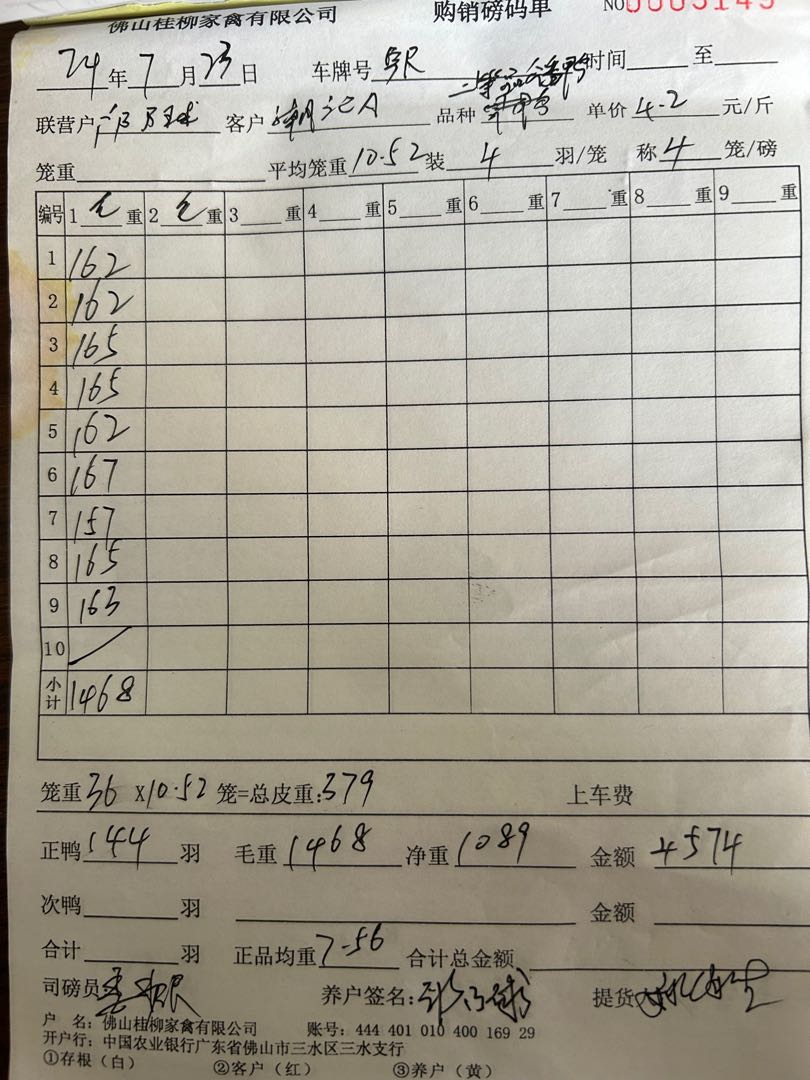 佛山桂柳家禽有限公司 购销磅码单 NO0005149
24年7月23日 车牌号 时间 至
联营户 客户 记A 品种 单价4.2元/斤
笼重 平均笼重10.52装4羽/笼 称4笼/磅
编号 1 毛重 2 毛重 3 重 4 重 5 重 6 重 7 重 8 重 9 重
1 162
2 162
3 165
4 165
5 162
6 167
7 157
8 165
9 163
10
小计 1468
笼重36 X10.52笼=总皮重:379 上车费
正鸭144羽 毛重1468 净重1089 金额4574
次鸭 羽 金额
合计 羽 正品均重7.56 合计总金额
司磅员 养户签名: 提货
户 名: 佛山桂柳家禽有限公司 账号: 444 401 010 400 169 29
开户行: 中国农业银行广东省佛山市三水区三水支行
①存根(白) ②客户(红) ③养户(黄)